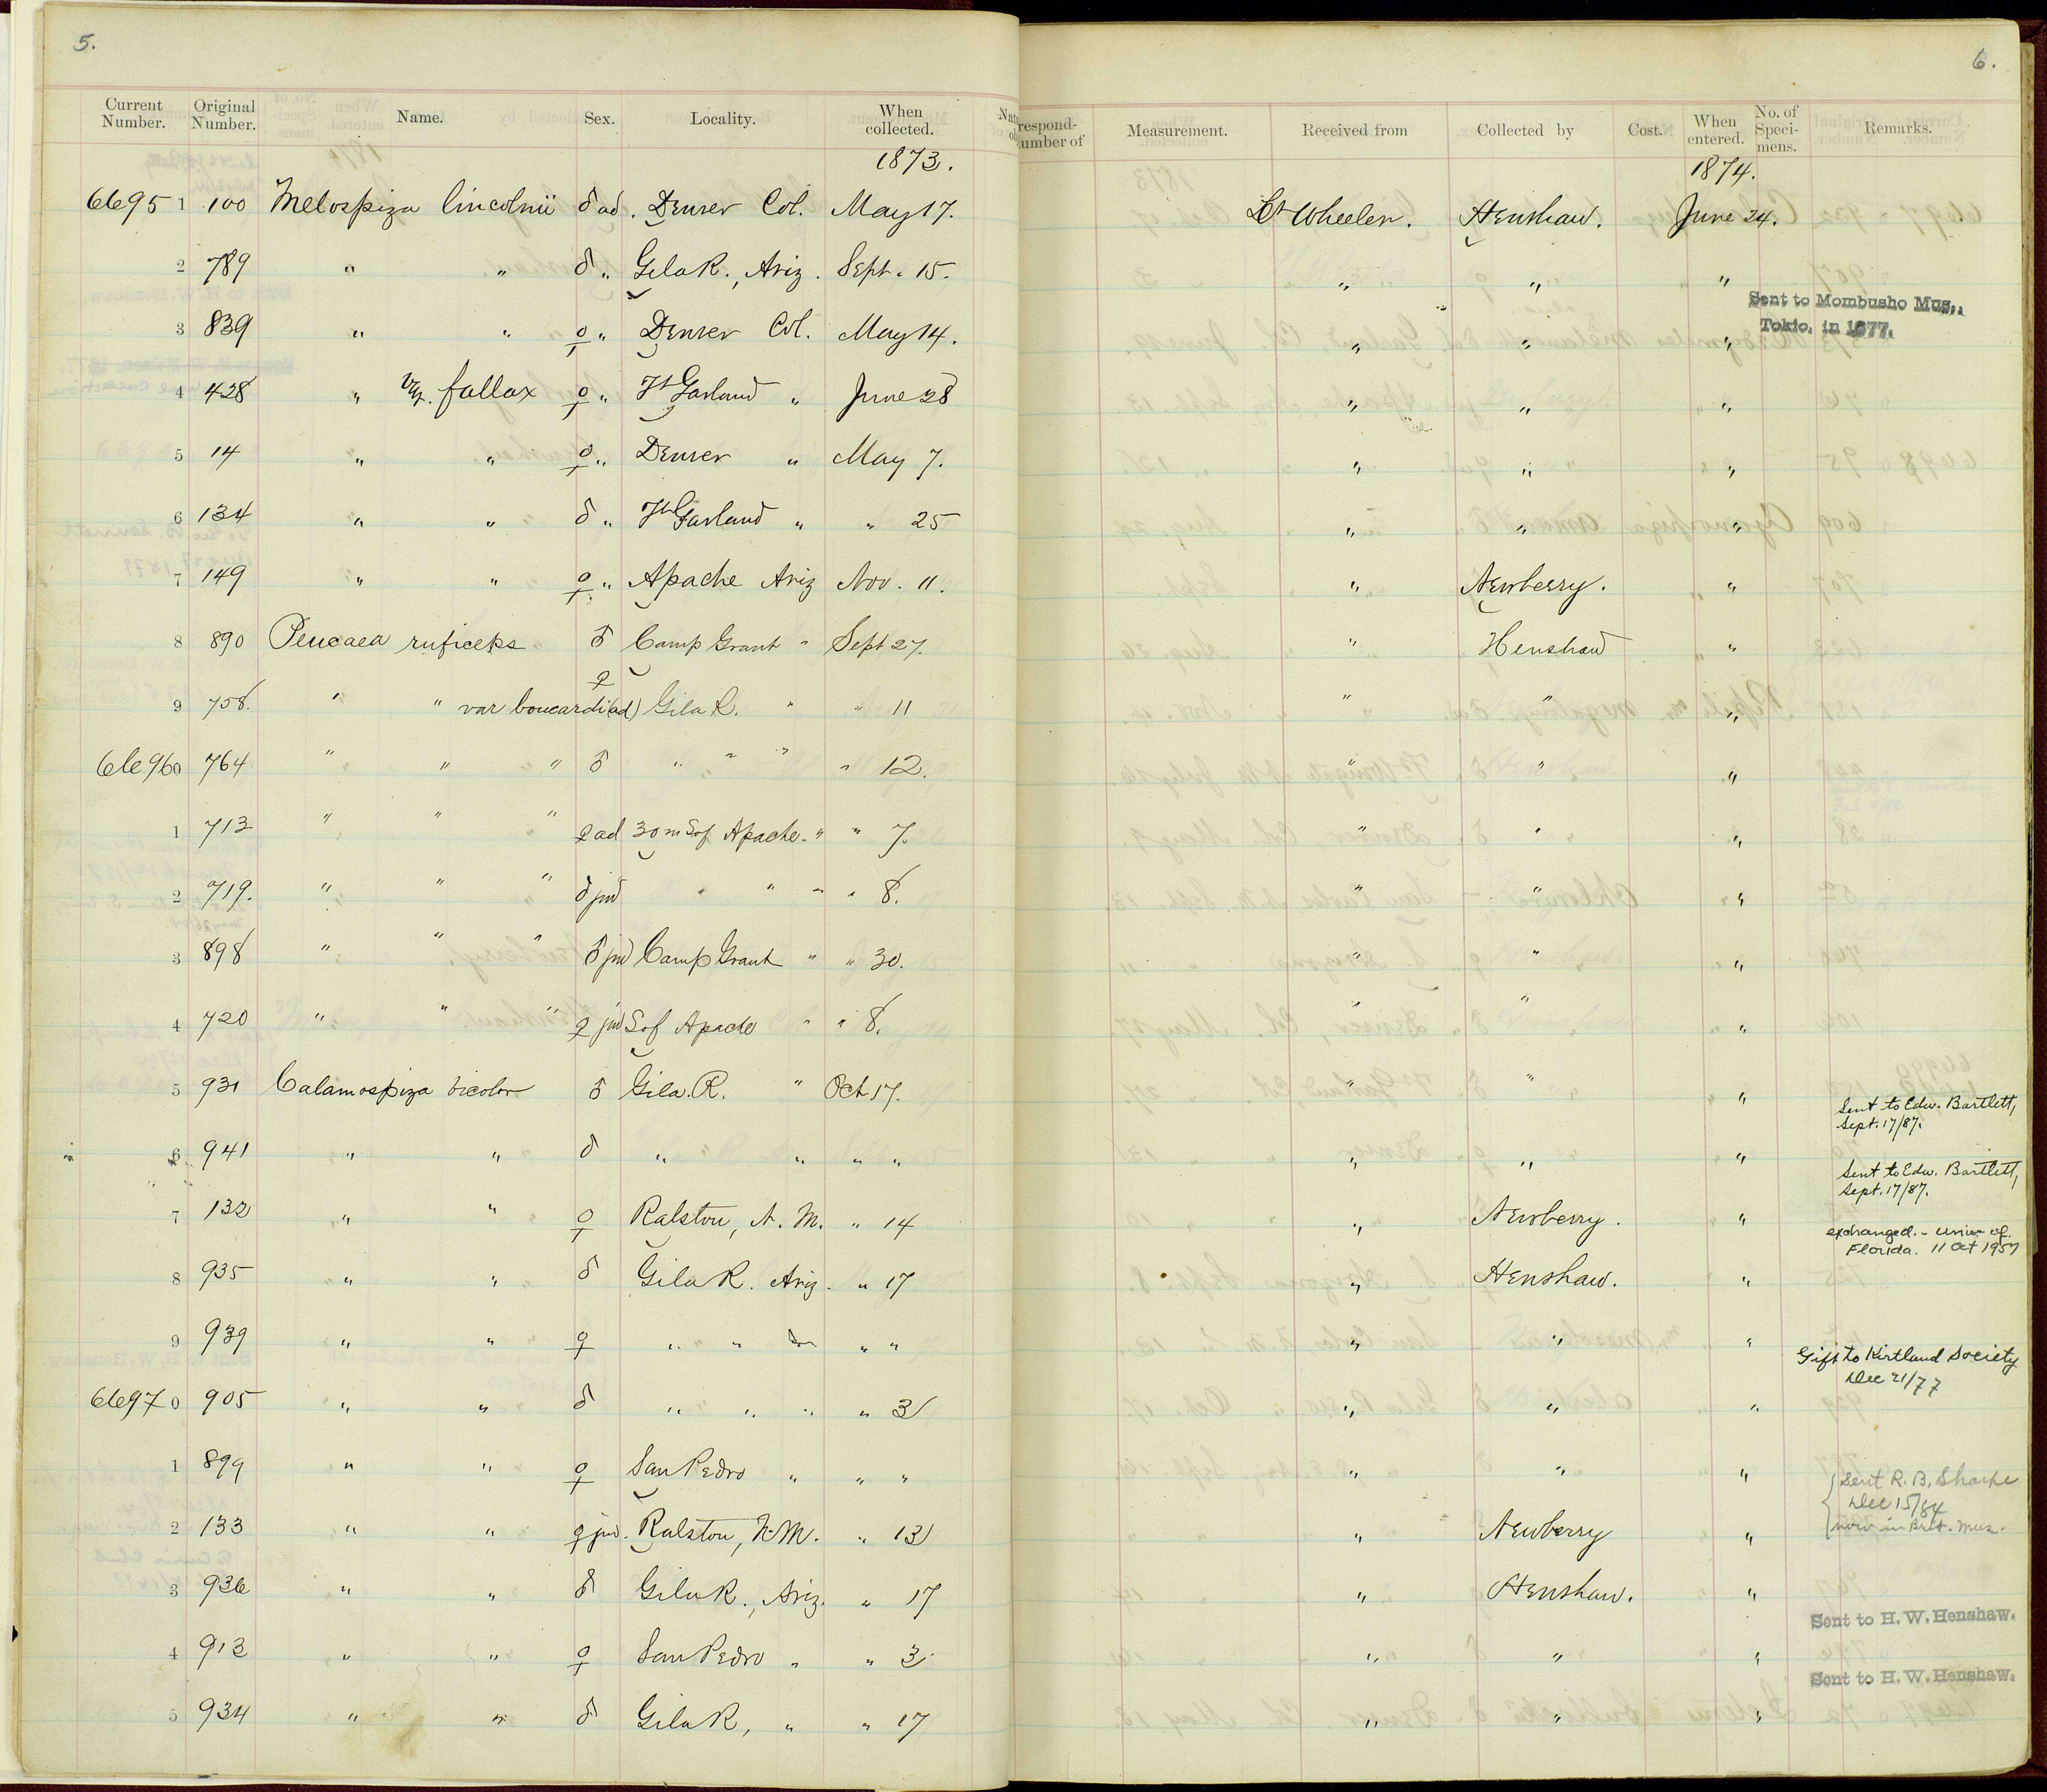 5.
6.
Current Number. Original Number. Name. Sex. Locality. When collected. Nat
respond- umber of Measurement. Received from Collected by Cost. When entered. No. of Speci- mens. Remarks.
1873. 1874.
66951 100 Melospiza lincolnii ♂ ad. Denver Col. May 17. Lt Wheeler. Henshaw. June 24.
2 789 " " ♂ " Gila R., Ariz. Sept. 15. " " "
3 839 " " ♀ " Denver Col. May 14. " " " Sent to Mombusho Mus., Tokio, in 1877.
4 428 " var. fallax ♀ " Ft Garland " June 28 " " "
5 14 " " ♀ " Denver " May 7. " " "
6 134 " " ♂ " Ft Garland " " 25 " " "
7 149 " " ♀ " Apache Ariz Nov. 11. " Newberry. "
8 890 Peucaea ruficeps ♂ Camp Grant " Sept 27. " Henshaw "
9 758. " " var boucardi ♀ (ad) Gila R. " " 11 " " "
66960 764 " " " ♂ " " " " 12. " " "
1 713 " " " ♀ ad 30 m S of Apache " " 7. " " "
2 719. " " " ♂ juv " " " " 8. " " "
3 898 " " " ♂ juv Camp Grant " " 30. " " "
4 720 " " " ♀ juv S of Apache " " 8. " " "
5 931 Calamospiza bicolor ♂ Gila. R. " Oct 17. " " " Sent to Edw. Bartlett, Sept. 17/87.
6 941 " " ♂ " " " " " " " Sent to Edw. Bartlett, Sept. 17/87.
7 132 " " ♀ Ralston, N. M. " 14 " Newberry. " exchanged. - Univ of Florida. 11 Oct 1957
8 935 " " ♂ Gila R. Ariz. " 17 " Henshaw. "
9 939 " " ♀ " " " " " " " Gift to Kirtland Society Dec 21/77
66970 905 " " ♂ " " " " 3 " " "
1 899 " " ♀ San Pedro " " " " " " Sent R. B. Sharpe
2 133 " " ♀ juv. Ralston, N.M. " 13 " Newberry " Dec 15/84 now in Brit. Mus.
3 936 " " ♂ Gila R., Ariz. " 17 " Henshaw. " Sent to H. W. Henshaw.
4 913 " " ♀ San Pedro " " 3 " " " Sent to H. W. Henshaw.
5 934 " " ♂ Gila R, " " 17 " " "